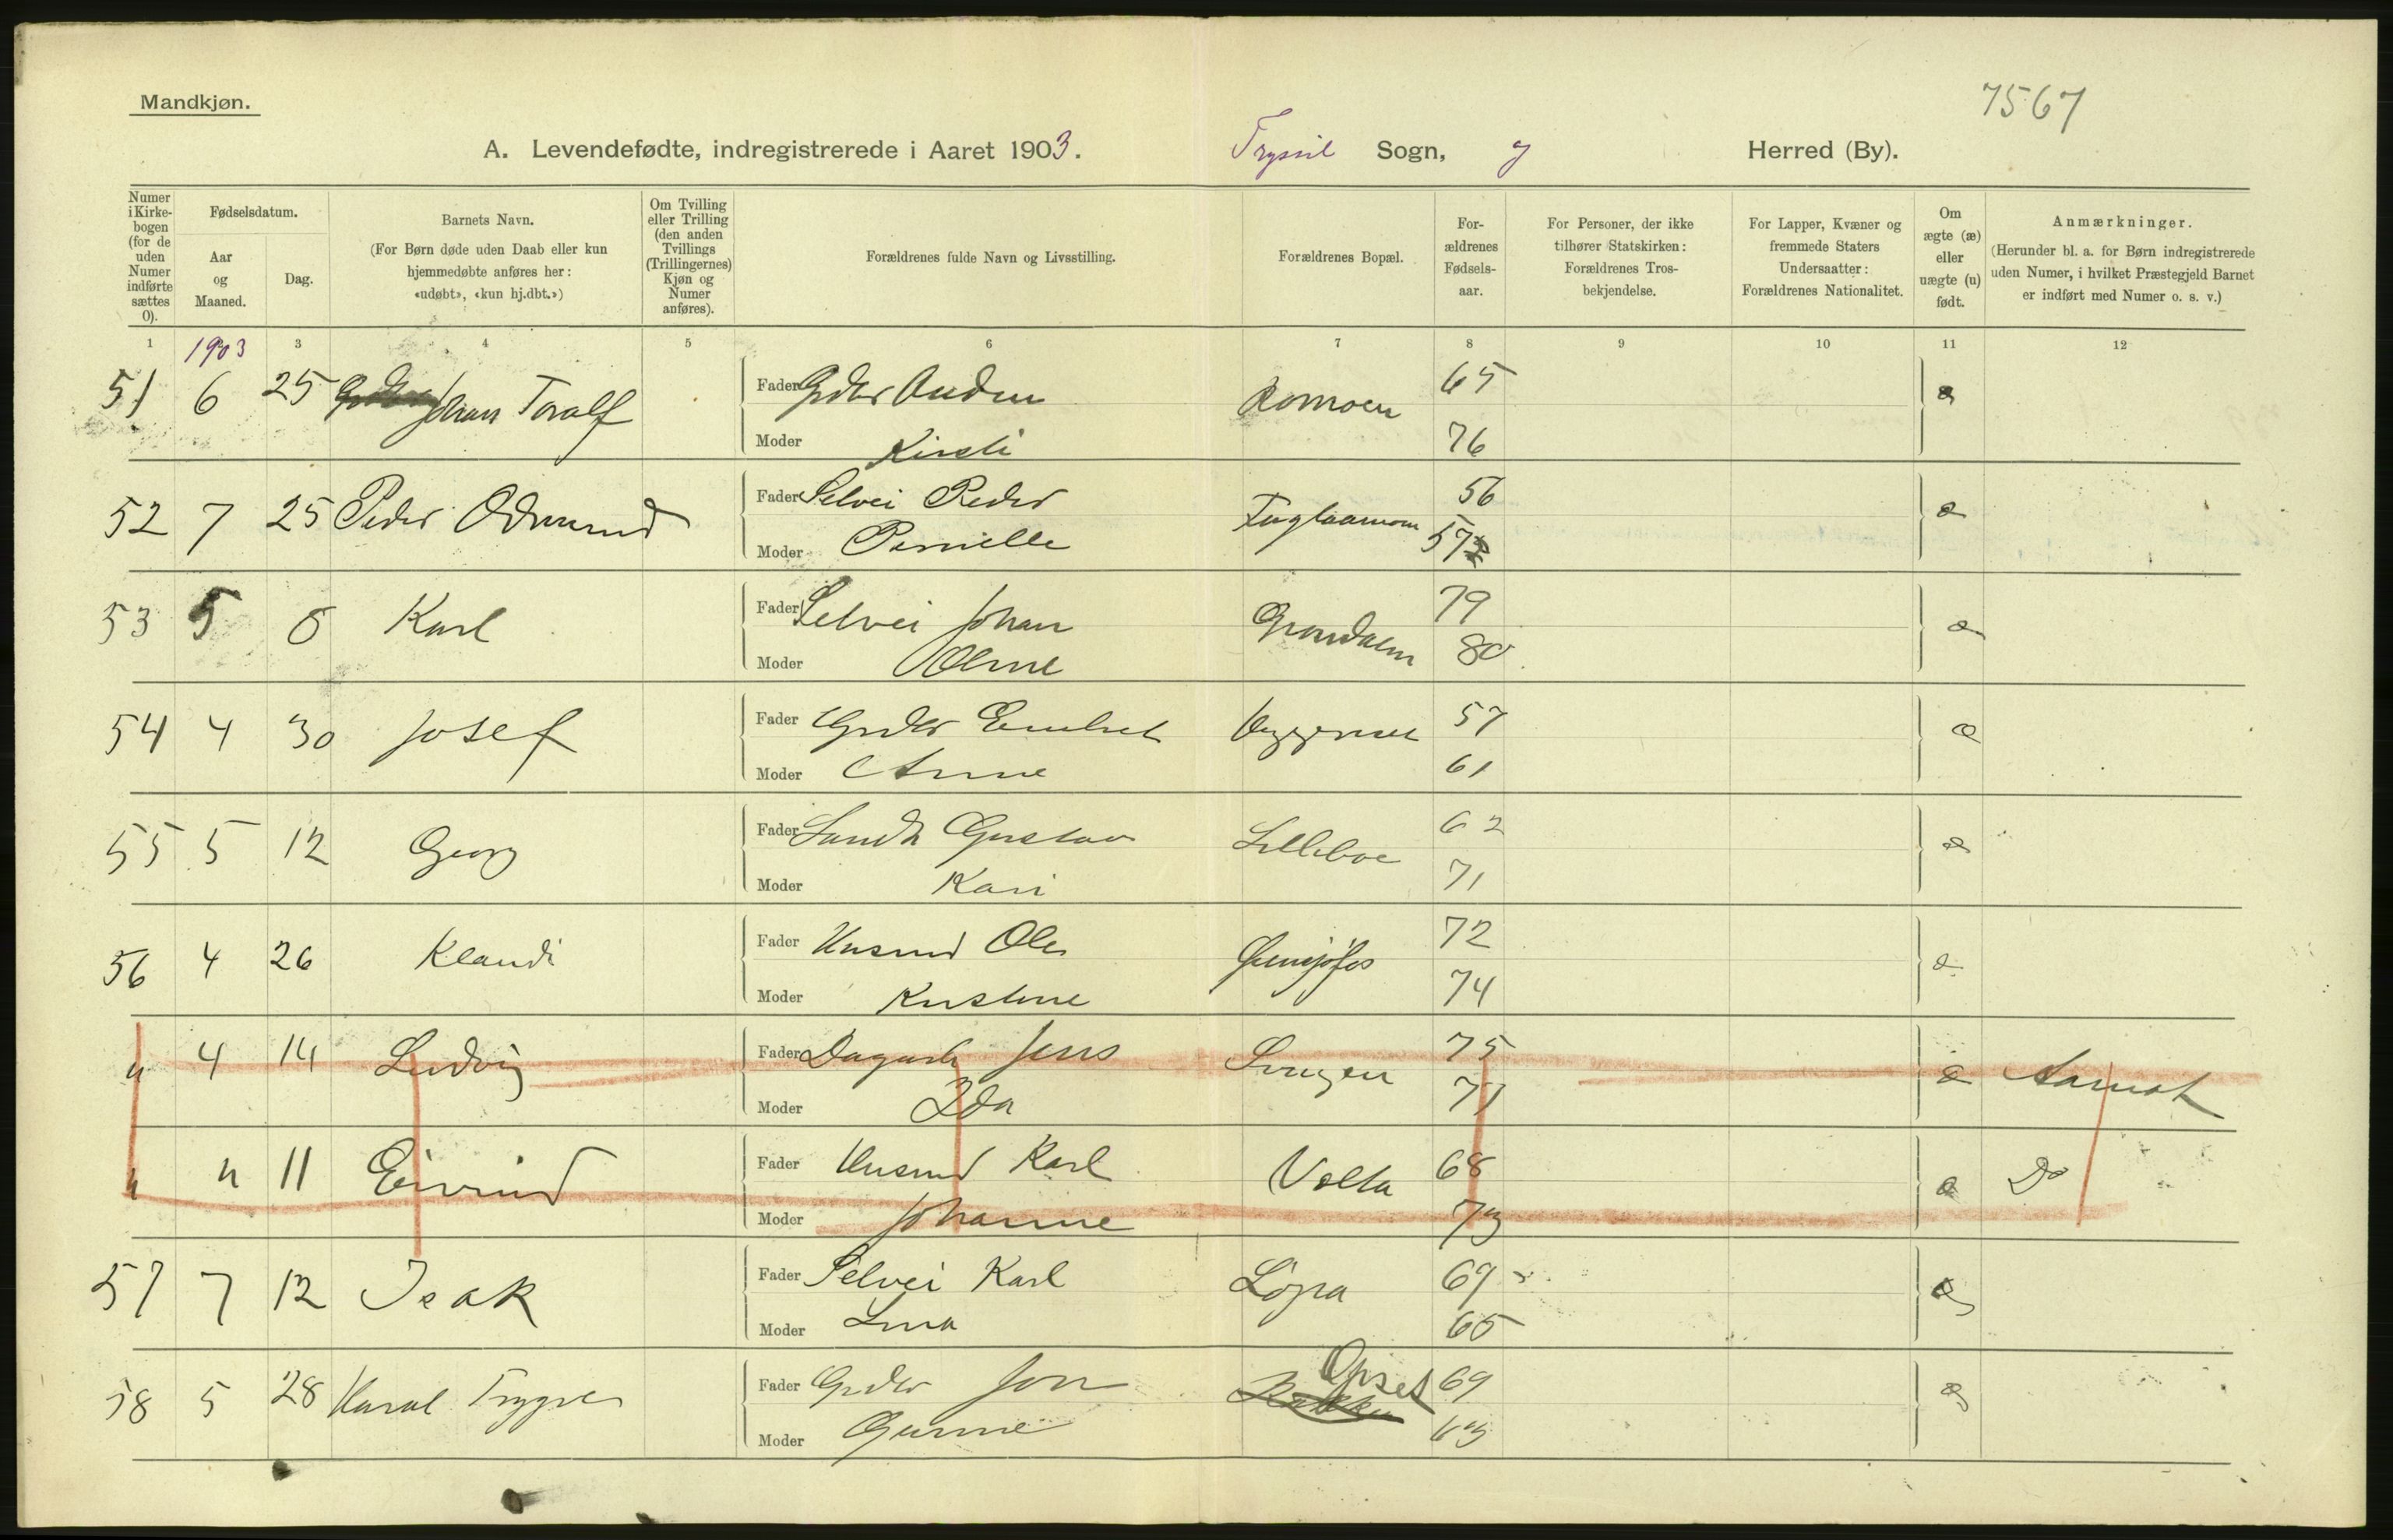 7567
Mandkjøn.
A. Levendefødte, indregistrerede i Aaret 1903. Trysil Sogn, Herred (By).
Numer i Kirkebogen (for de uden Numer indførte sættes 0).
Fødselsdatum.
Aar og Maaned.
Dag.
Barnets Navn.
(For Børn døde uden Daab eller kun hjemmedøbte anføres her: «udøbt», «kun hj.dbt.»)
Om Tvilling eller Trilling (den anden Tvillings (Trillingernes) Kjøn og Numer anføres).
Forældrenes fulde Navn og Livsstilling.
Forældrenes Bopæl.
Forældrenes Fødselsaar.
For Personer, der ikke tilhører Statskirken: Forældrenes Trosbekjendelse.
For Lapper, Kvæner og fremmede Staters Undersaatter: Forældrenes Nationalitet.
Om ægte (æ) eller uægte (u) født.
Anmærkninger.
(Herunder bl. a. for Børn indregistrerede uden Numer, i hvilket Præstegjeld Barnet er indført med Numer o. s. v.)
1 3 4 5 6 7 8 9 10 11 12
1903
51 6 25 Johan Toralf Fader Gdbr 65 æ
Moder Kirsti 76
52 7 25 Peder Odmund Fader Selvei Peder 56 æ
Moder Pernille 57
53 5 Karl Fader Selvei Johan 79 æ
Moder Oline 80
54 4 30 Josef Fader Gdbr 57 æ
Moder Anne 61
55 5 12 Georg Fader Gustav Lilleboe 62 æ
Moder Kari 71
56 4 26 Klaudi Fader Husmd Ole 72 æ
Moder Kristine 74
" 4 14 Ludvig Fader Dagarb Jens 75 æ Aamot
Moder Ida 71
" " 11 Eivind Fader Husmd Karl Volla 68 æ Do
Moder Johanne 73
57 7 12 Isak Fader Selvei Karl Löpa 69 æ
Moder Lina 65
58 5 28 Haral Trygve Fader Gdbr Jon Opset 69 æ
Moder Gunne 63